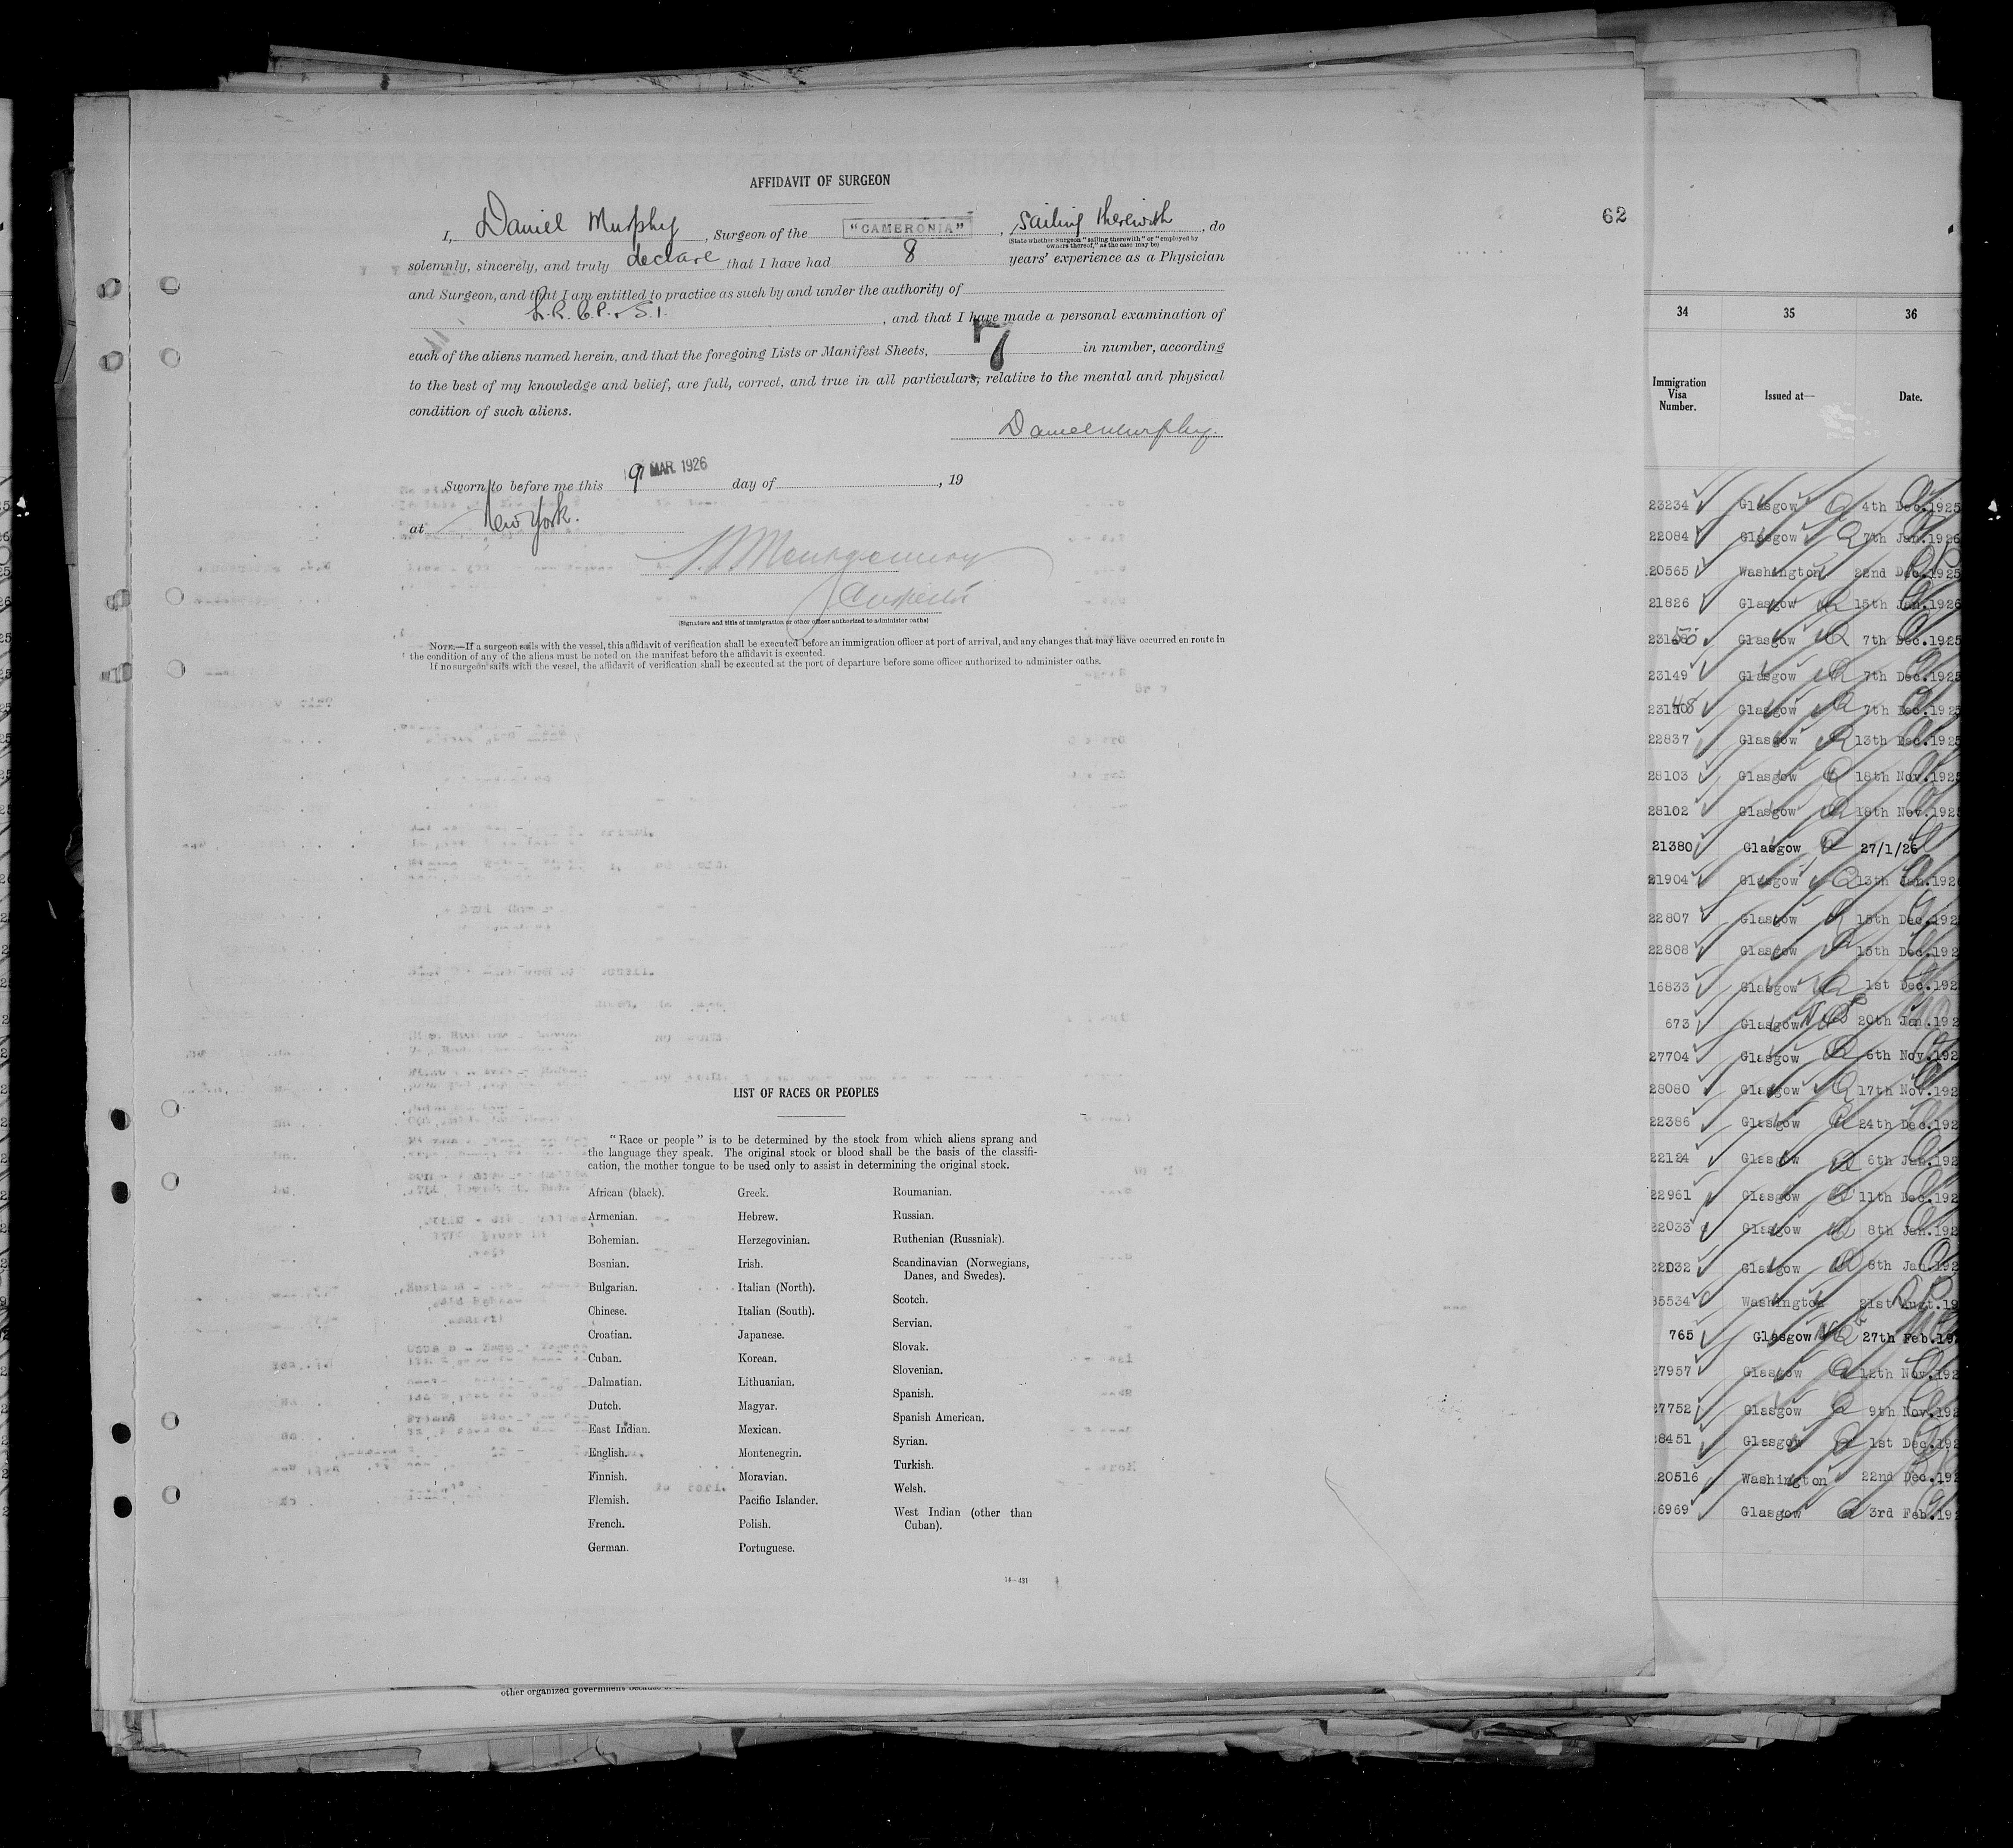 AFFIDAVIT OF SURGEON
62
I, Daniel Murphy, Surgeon of the "CAMERONIA", sailing therewith, do
(State whether Surgeon "sailing therewith" or "employed by
owners thereof," as the case may be)
solemnly, sincerely, and truly declare that I have had 8 years' experience as a Physician
and Surgeon, and that I am entitled to practice as such by and under the authority of
L.R.C.P. & S.I., and that I have made a personal examination of
each of the aliens named herein, and that the foregoing Lists or Manifest Sheets, 7 in number, according
to the best of my knowledge and belief, are full, correct, and true in all particulars, relative to the mental and physical
condition of such aliens.
Daniel Murphy.
Sworn to before me this 9 MAR. 1926 day of , 19
at New York.
Montgomery
Inspector
(Signature and title of immigration or other officer authorized to administer oaths)
NOTE.—If a surgeon sails with the vessel, this affidavit of verification shall be executed before an immigration officer at port of arrival, and any changes that may have occurred en route in
the condition of any of the aliens must be noted on the manifest before the affidavit is executed.
If no surgeon sails with the vessel, the affidavit of verification shall be executed at the port of departure before some officer authorized to administer oaths.
LIST OF RACES OR PEOPLES
"Race or people" is to be determined by the stock from which aliens sprang and
the language they speak. The original stock or blood shall be the basis of the classifi-
cation, the mother tongue to be used only to assist in determining the original stock.
African (black).
Armenian.
Bohemian.
Bosnian.
Bulgarian.
Chinese.
Croatian.
Cuban.
Dalmatian.
Dutch.
East Indian.
English.
Finnish.
Flemish.
French.
German.
Greek.
Hebrew.
Herzegovinian.
Irish.
Italian (North).
Italian (South).
Japanese.
Korean.
Lithuanian.
Magyar.
Mexican.
Montenegrin.
Moravian.
Pacific Islander.
Polish.
Portuguese.
Roumanian.
Russian.
Ruthenian (Russniak).
Scandinavian (Norwegians,
Danes, and Swedes).
Scotch.
Servian.
Slovak.
Slovenian.
Spanish.
Spanish American.
Syrian.
Turkish.
Welsh.
West Indian (other than
Cuban).
14—431
other organized government because
34 35 36
Immigration
Visa
Number.
Issued at—
Date.
23234 Glasgow 4th Dec.1925
22084 Glasgow 7th Jan.1926
20565 Washington 22nd Dec.1925
21826 Glasgow 15th Jan.1926
Glasgow 7th Dec.1925
23149 Glasgow 7th Dec.1925
Glasgow 7th Dec.1925
22837 Glasgow 13th Dec.1925
28103 Glasgow 18th Nov.1925
28102 Glasgow 18th Nov.1925
21380 Glasgow 27/1/26
21904 Glasgow 13th Jan.192
22807 Glasgow 15th Dec.192
22808 Glasgow 15th Dec.192
16833 Glasgow 1st Dec.192
673 Glasgow 20th Jan.192
27704 Glasgow 6th Nov.192
28080 Glasgow 17th Nov.192
22386 Glasgow 24th Dec.192
22124 Glasgow 6th Jan.192
22961 Glasgow 11th Dec.192
22033 Glasgow 8th Jan.192
22032 Glasgow 8th Jan.192
35534 Washington 21st Augt.19
765 Glasgow 27th Feb.19
27957 Glasgow 12th Nov.192
27752 Glasgow 9th Nov.192
8451 Glasgow 1st Dec.192
20516 Washington 22nd Dec.192
6969 Glasgow 3rd Feb.19